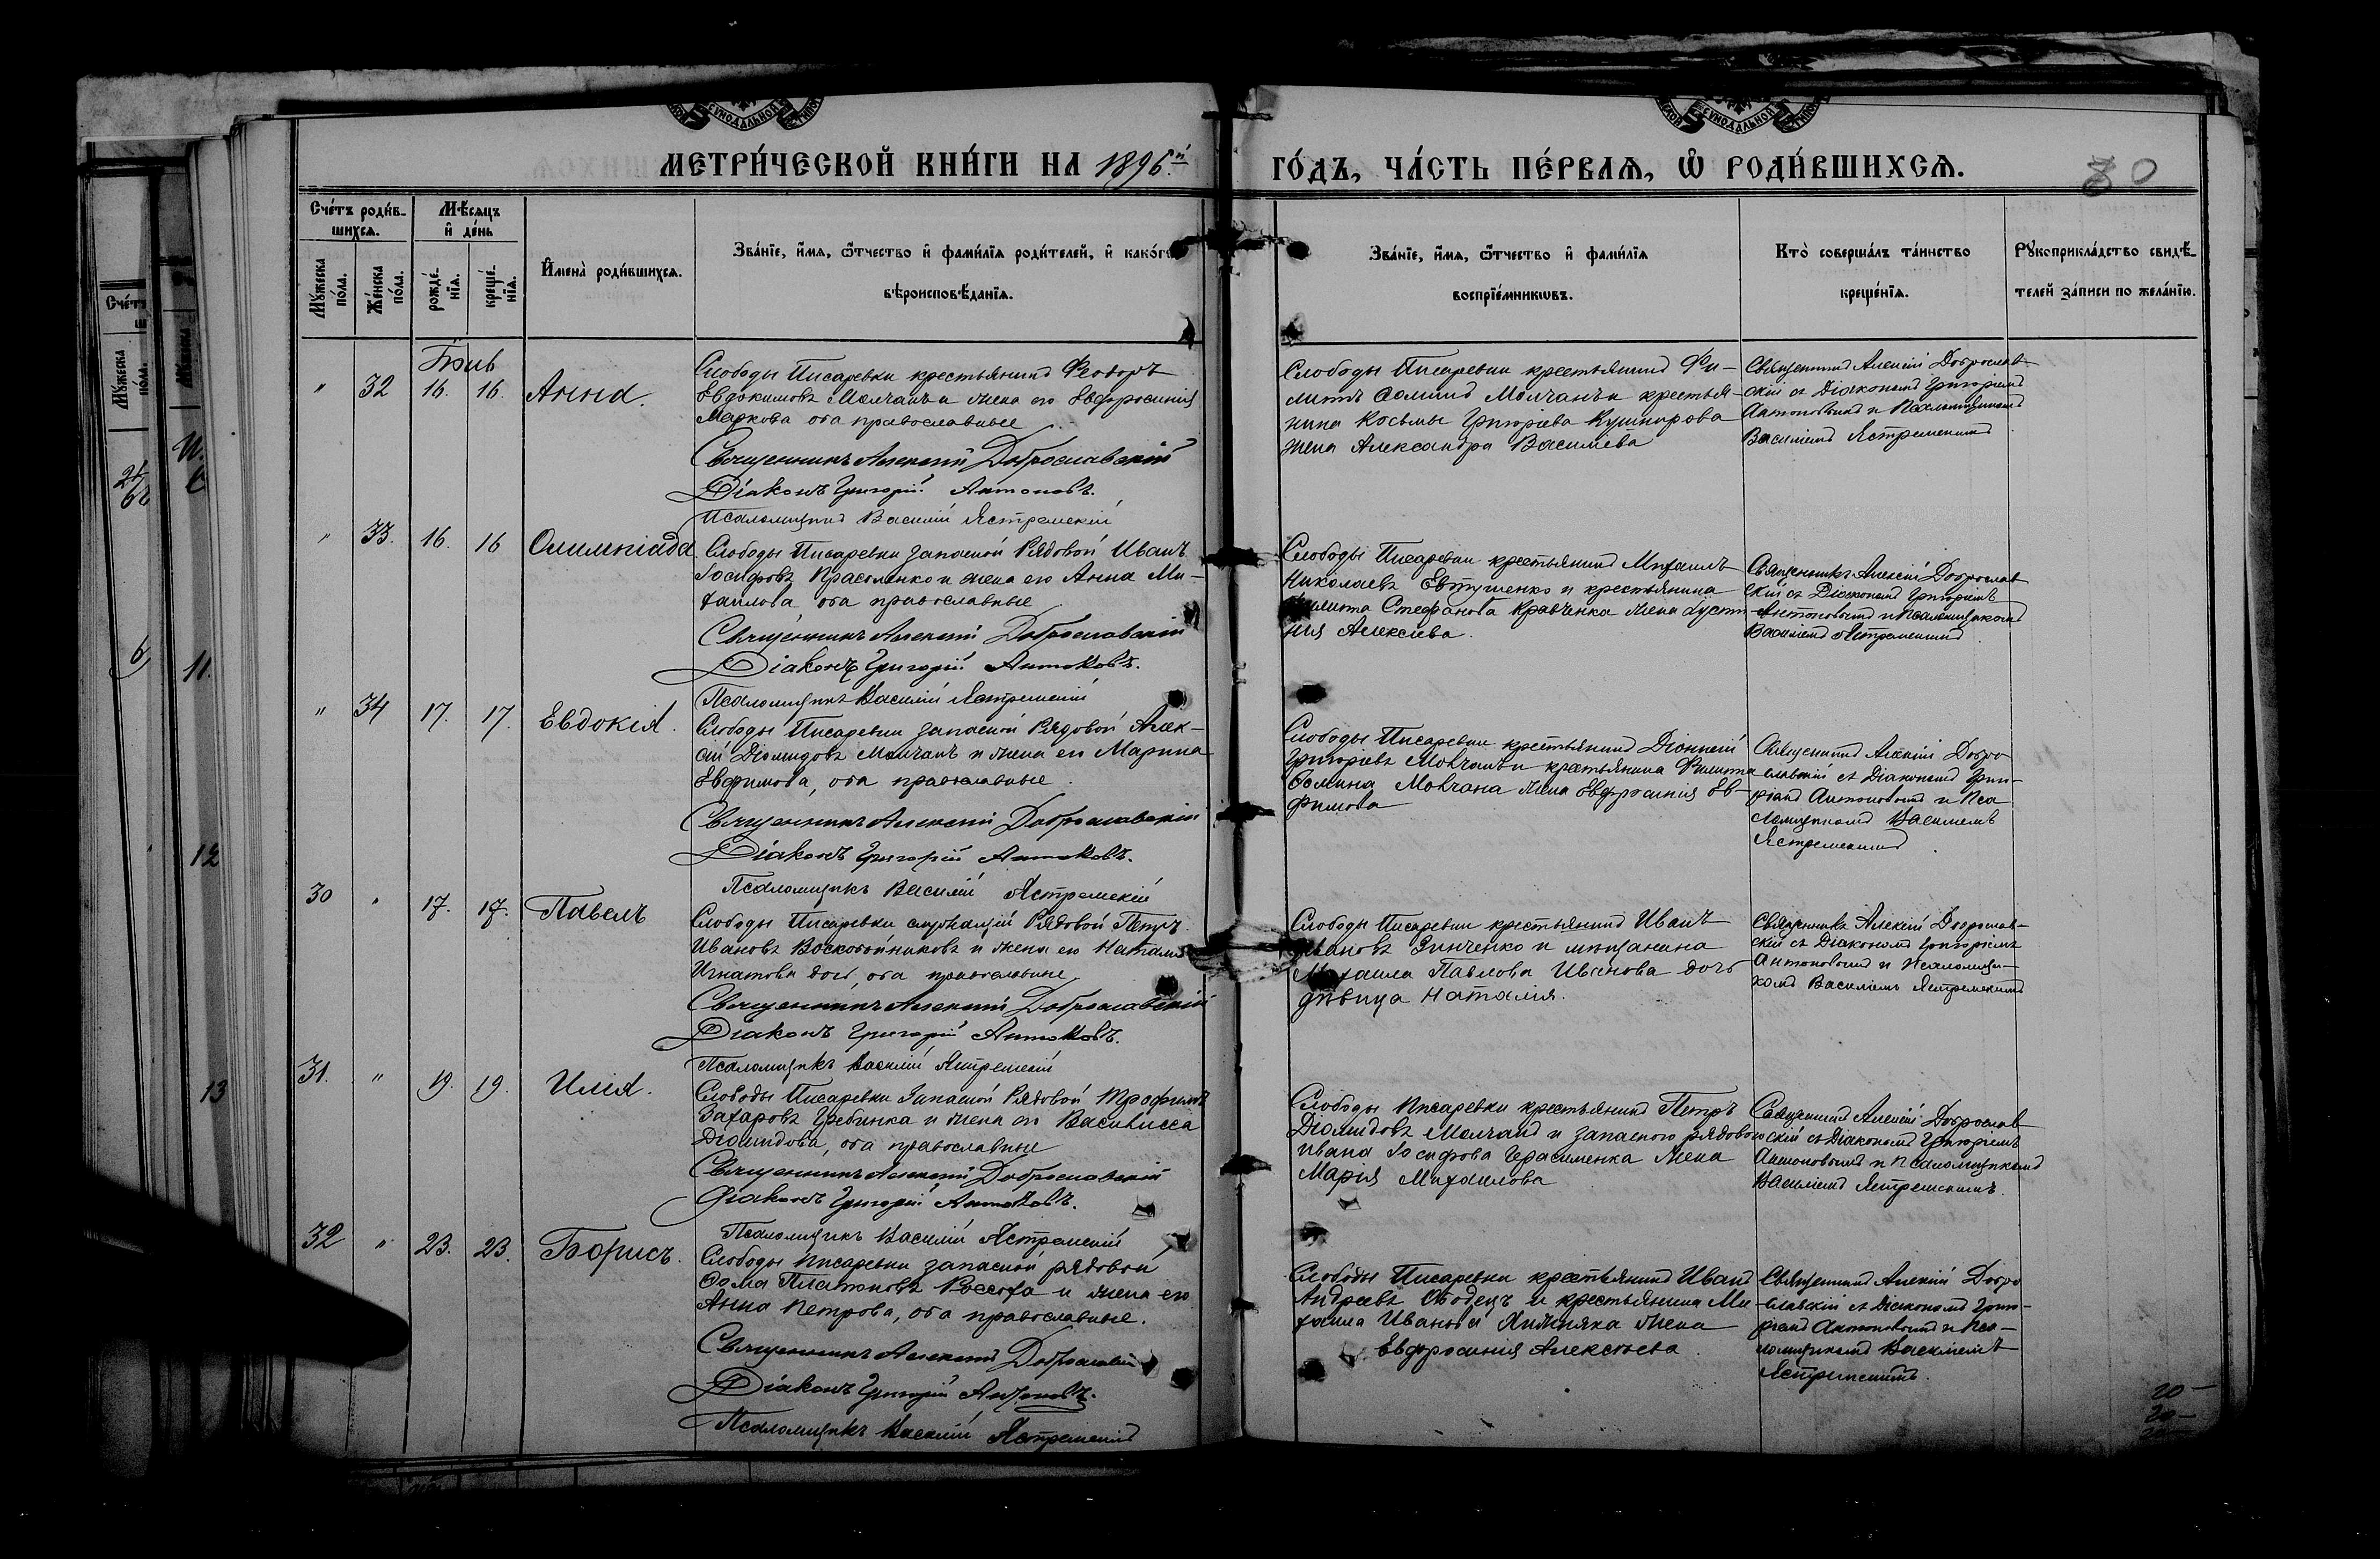 МЕТРИ́ЧЕСКОЙ КНИ́ГИ НА 1896й
ГО́ДЪ, ЧА́СТЬ ПЕ́РВАЯ, Ѡ҆ РОДИ́ВШИХСЯ.
80
Сче́тъ роди́в-
шихся.
Мѣ́сяцъ
и҆ де́нь
Мꙋжеска
по́ла.
Же́нска
по́ла.
рожде́-
нїя.
креще́-
нїя.
И҆мена̀ роди́вшихся.
Зва́нїе, и҆́мя, ѻ҆́тчество и҆ фами́лїя роди́телей, и҆ како́гѡ
вѣроисповѣ́данїя.
Зва́нїе, и҆́мя, ѻ҆́тчество и҆ фами́лїя
воспрїе́мникѡвъ.
Кто̀ соверша́лъ та́инство
креще́нїя.
Рꙋкоприкла́дство свидѣ́-
телей за́писи по жела́нїю.
Іюль
" 32 16. 16. Анна.
Слободы Писаревки крестьянинъ Ѳеодоръ
Евдокимовъ Молчанъ и жена его Евфросинія
Маркова оба православные
Священникъ Алексій Доброславскій
Діаконъ Григорій Антоновъ.
Псаломщикъ Василій Ястремскій
Слободы Писаревки крестьянинъ Фи-
липъ Ѳоминъ Молчанъ и крестья-
нина Косьмы Григоріева Кушнирова
жена Александра Василіева
Священникъ Алексій Доброслав-
скій съ Діакономъ Григоріемъ
Антоновымъ и Псаломщикомъ
Василіемъ Ястремскимъ
" 33. 16. 16 Олимпіада
Слободы Писаревки запасной Рядовой Иванъ
Іосифовъ и жена его Анна Ми-
хаилова, оба православные
Священникъ Алексій Доброславскій
Діаконъ Григорій Антоновъ.
Псаломщикъ Василій Ястремскій
Слободы Писаревки крестьянинъ Михаилъ
Николаевъ Евтушенко и крестьянина
Филипа Стефанова Кравченка жена Іусти-
нія Алексіева.
Священникъ Алексій Доброслав
скій съ Діакономъ Григоріемъ
Антоновымъ и Псаломщикомъ
Василіемъ Ястремскимъ
" 34 17. 17. Евдокія.
Слободы Писаревки запасной Рядовой Алек-
сій Діомидовъ Молчанъ и жена его Марина
Евфимова, оба православные.
Священникъ Алексій Доброславскій
Діаконъ Григорій Антоновъ.
Псаломщикъ Василій Ястремскій
Слободы Писаревки крестьянинъ Діонисій
Григоріевъ Мовчанъ и крестьянина Филипа
Ѳомина Мовчана жена Евфросинія Ев-
фимова
Священникъ Алексій Добро
славскій съ Діакономъ Григо-
ріемъ Антоновымъ и Пса
ломщикомъ Василіемъ
Ястремскимъ.
30 " 17. 17. Павелъ
Слободы Писаревки служащій Рядовой Петръ
Ивановъ Воскобойниковъ и жена его Наталія
Игнатова, оба православные,
Священникъ Алексій Доброславскій
Діаконъ Григорій Антоновъ.
Псаломщикъ Василій Ястремскій
Слободы Писаревки крестьянинъ Иванъ
Ивановъ Зинченко и мѣщанина
Михаила Павлова Иванова дочь
дѣвица Наталія.
Священникъ Алексій Доброслав-
скій съ Діакономъ Григоріемъ
Антоновымъ и Псаломщи-
комъ Василіемъ Ястремскимъ
31. " 19. 19. Илія.
Слободы Писаревки Запасной Рядовой Трофимъ
Захаровъ Гребинка и жена его Василисса
Діомидова, оба православные
Священникъ Алексій Доброславскій
Діаконъ Григорій Антоновъ.
Псаломщикъ Василій Ястремскій
Слободы Писаревки крестьянинъ Петръ
Діомидовъ Молчанъ и запасного рядового
Ивана Іосифова Герасименка жена
Марія Михаилова
Священникъ Алексій Доброслав
скій съ Діакономъ Григоріемъ
Антоновымъ и Псаломщикомъ
Василіемъ Ястремскимъ.
32 " 23. 23. Борисъ.
Слободы Писаревки запасной рядовой
Ѳома Платоновъ Россоха и жена его
Анна Петрова, оба православные.
Священникъ Алексій Доброславскій
Діаконъ Григорій Антоновъ.
Псаломщикъ Василій Ястремскій
Слободы Писаревки крестьянинъ Иванъ
Андреевъ Ободецъ и крестьянина Ми-
хаила Иванова Хижняка жена
Евфросинія Алексѣева.
Священникъ Алексій Добро
славскій съ Діакономъ Григо-
ріемъ Антоновымъ и Пса-
ломщикомъ Василіемъ
Ястремскимъ.
11.
12
13
20 —
20 —